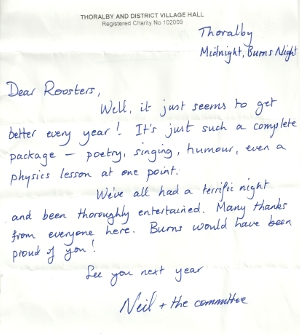 THORALBY AND DISTRICT VILLAGE HALL
Registered Charity No 102000
Thoralby
Midnight, Burns Night
Dear Roosters,
Well, it just seems to get
better every year! It's just such a complete
package – poetry, singing, humour, even a
physics lesson at one point.
We've all had a terrific night
and been thoroughly entertained. Many thanks
from everyone here. Burns would have been
proud of you!
See you next year
Neil + the committee